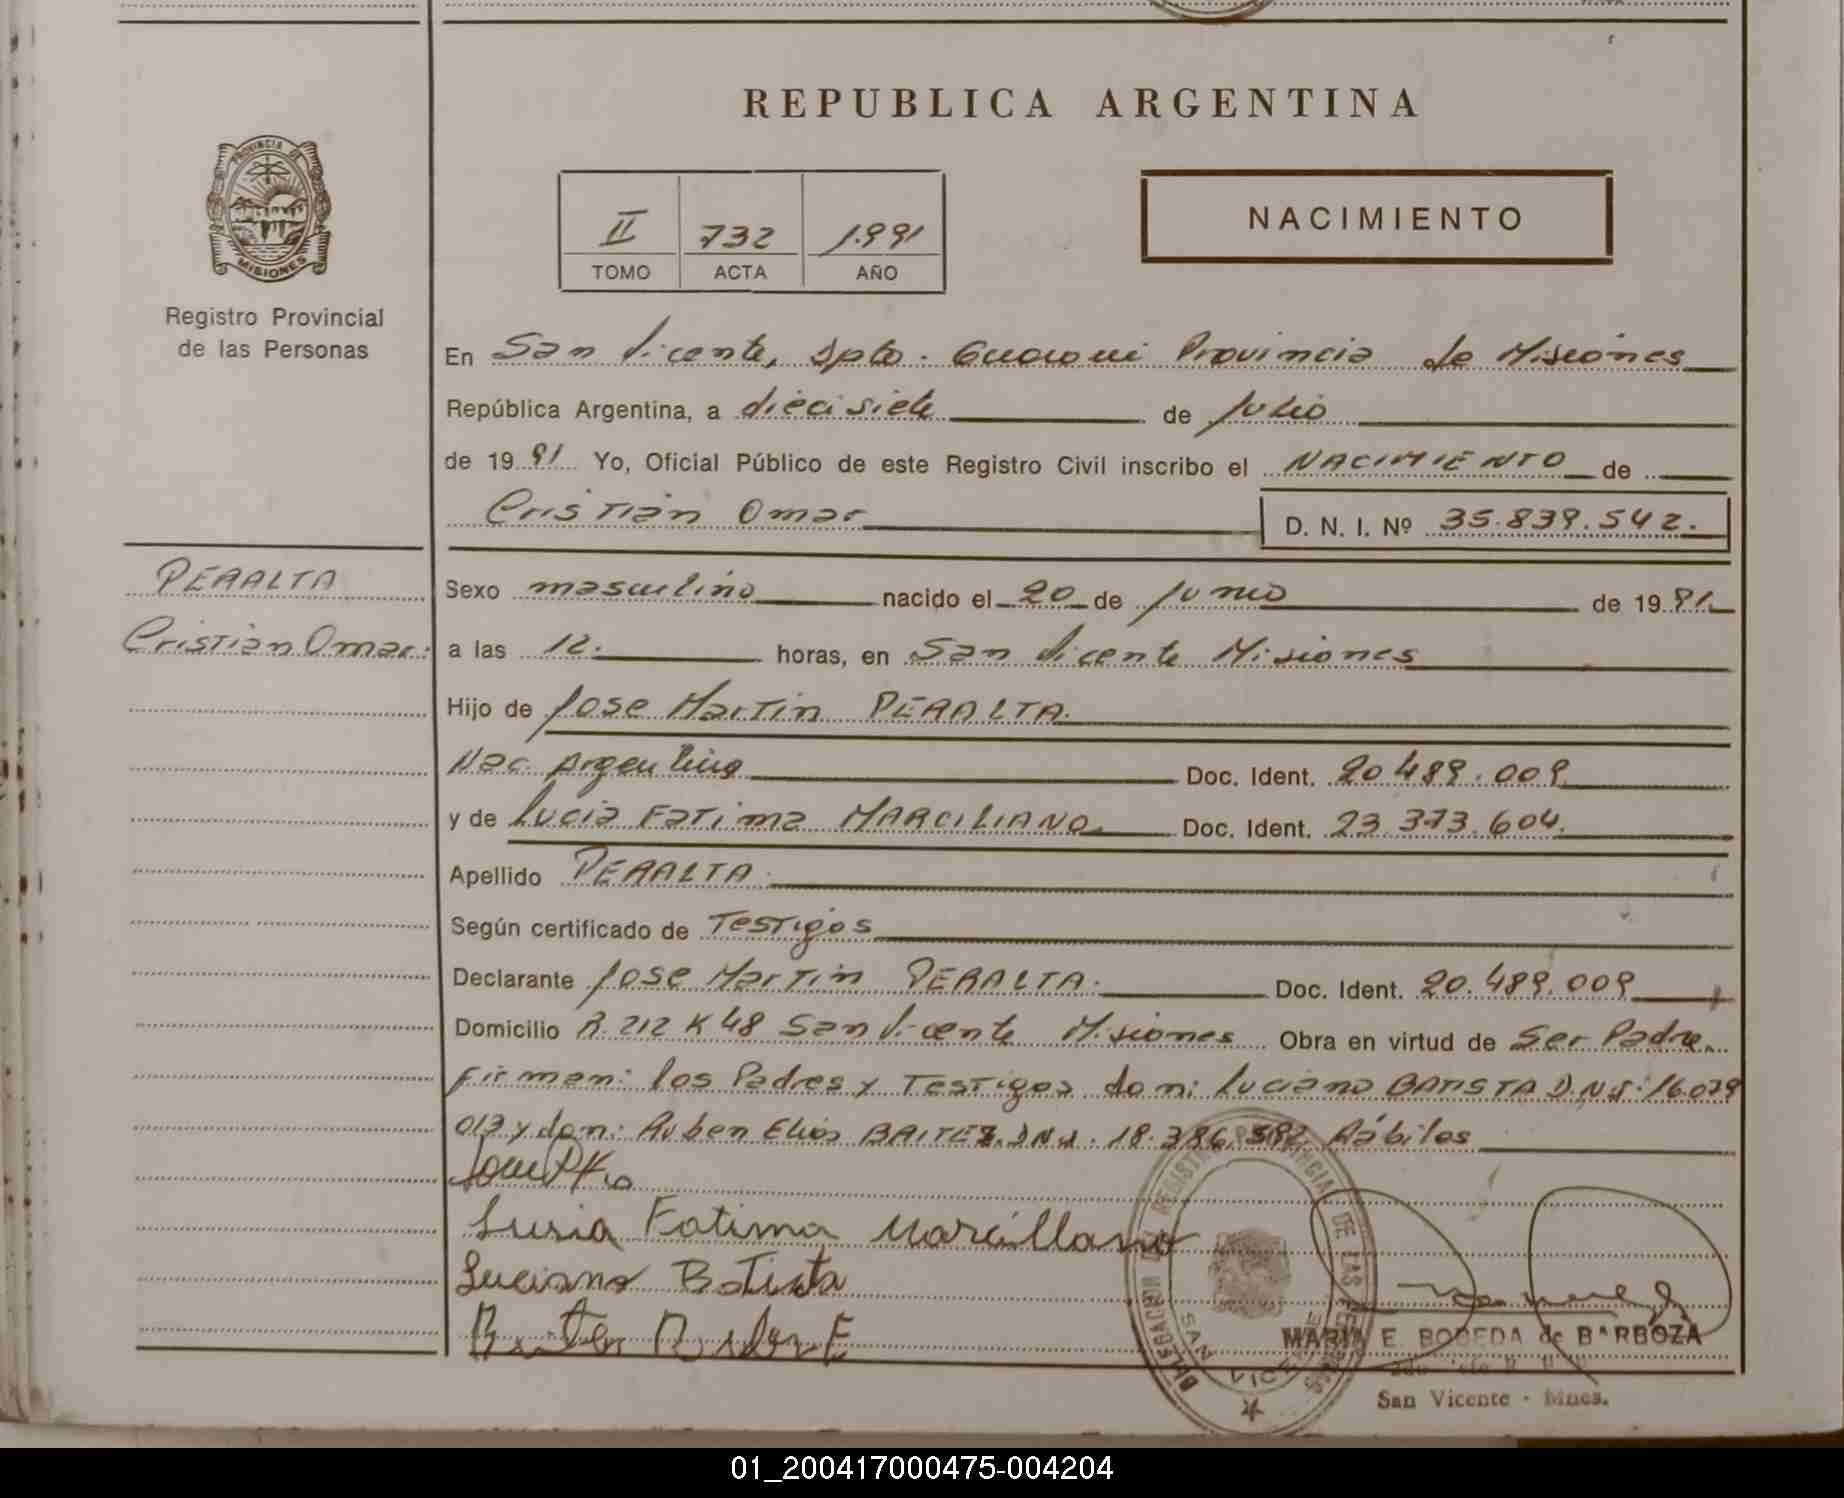 REPUBLICA ARGENTINA
PROVINCIA DE
MISIONES
Registro Provincial
de las Personas
II 732 1.991
TOMO ACTA AÑO
NACIMIENTO
En San Vicente, Dpto. Guarani Provincia de Misiones
República Argentina, a diecisiete de Julio
de 1991 Yo, Oficial Público de este Registro Civil inscribo el NACIMIENTO de
Cristian Omar D. N. I. Nº 35.839.542.
PERALTA
Cristian Omar.
Sexo masculino nacido el 20 de junio de 1991
a las 12. horas, en San Vicente Misiones
Hijo de Jose Martin PERALTA.
Nac. Argentina Doc. Ident. 20.489.009
y de Lucia Fatima MARCILIANO. Doc. Ident. 23.373.604.
Apellido PERALTA.
Según certificado de Testigos
Declarante Jose Martin PERALTA. Doc. Ident. 20.489.009
Domicilio R. 212 K 48 San Vicente Misiones Obra en virtud de Ser Padre.
Firman: los Padres y Testigos don: Luciano BATISTA D.N.I. 16.079
013 y don: Ruben Elias BAITEZ. D.N.I. 18.386.592 Hábiles
Lusia Fatima Marcillano
Luciano Batista
DELEGACION REGISTRO PROVINCIAL DE LAS PERSONAS
SAN VICENTE
MARIA E. BOBEDA de BARBOZA
San Vicente - Mnes.
01_200417000475-004204